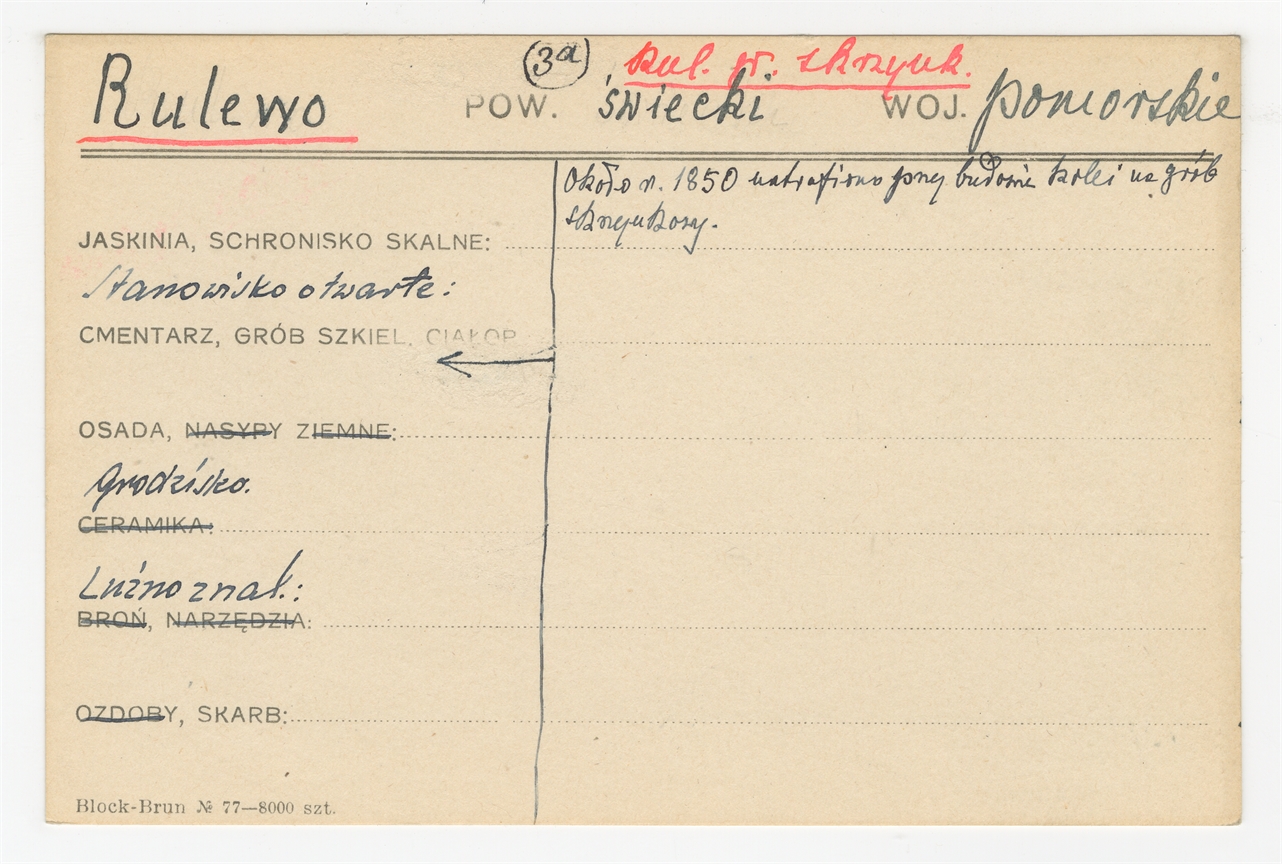 3a kul. gr. skrzynk.
Rulewo POW. świecki WOJ. pomorskie
Około r. 1850 natrafiono przy budowie kolei na grób
skrzynkowy.
JASKINIA, SCHRONISKO SKALNE:
Stanowisko otwarte:
CMENTARZ, GRÓB SZKIEL. CIAŁOP
OSADA, NASYPY ZIEMNE:
Grodzisko.
CERAMIKA:
Luźno znal.:
BROŃ, NARZĘDZIA:
OZDOBY, SKARB:
Block-Brun № 77—8000 szt.